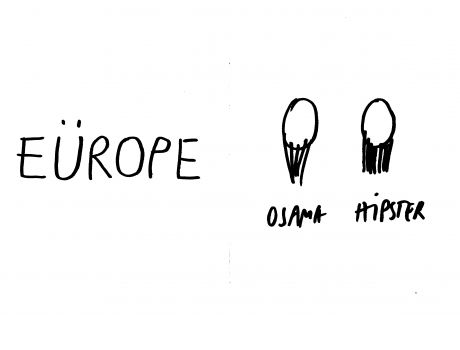 EÜROPE
OSAMA HiPSTER